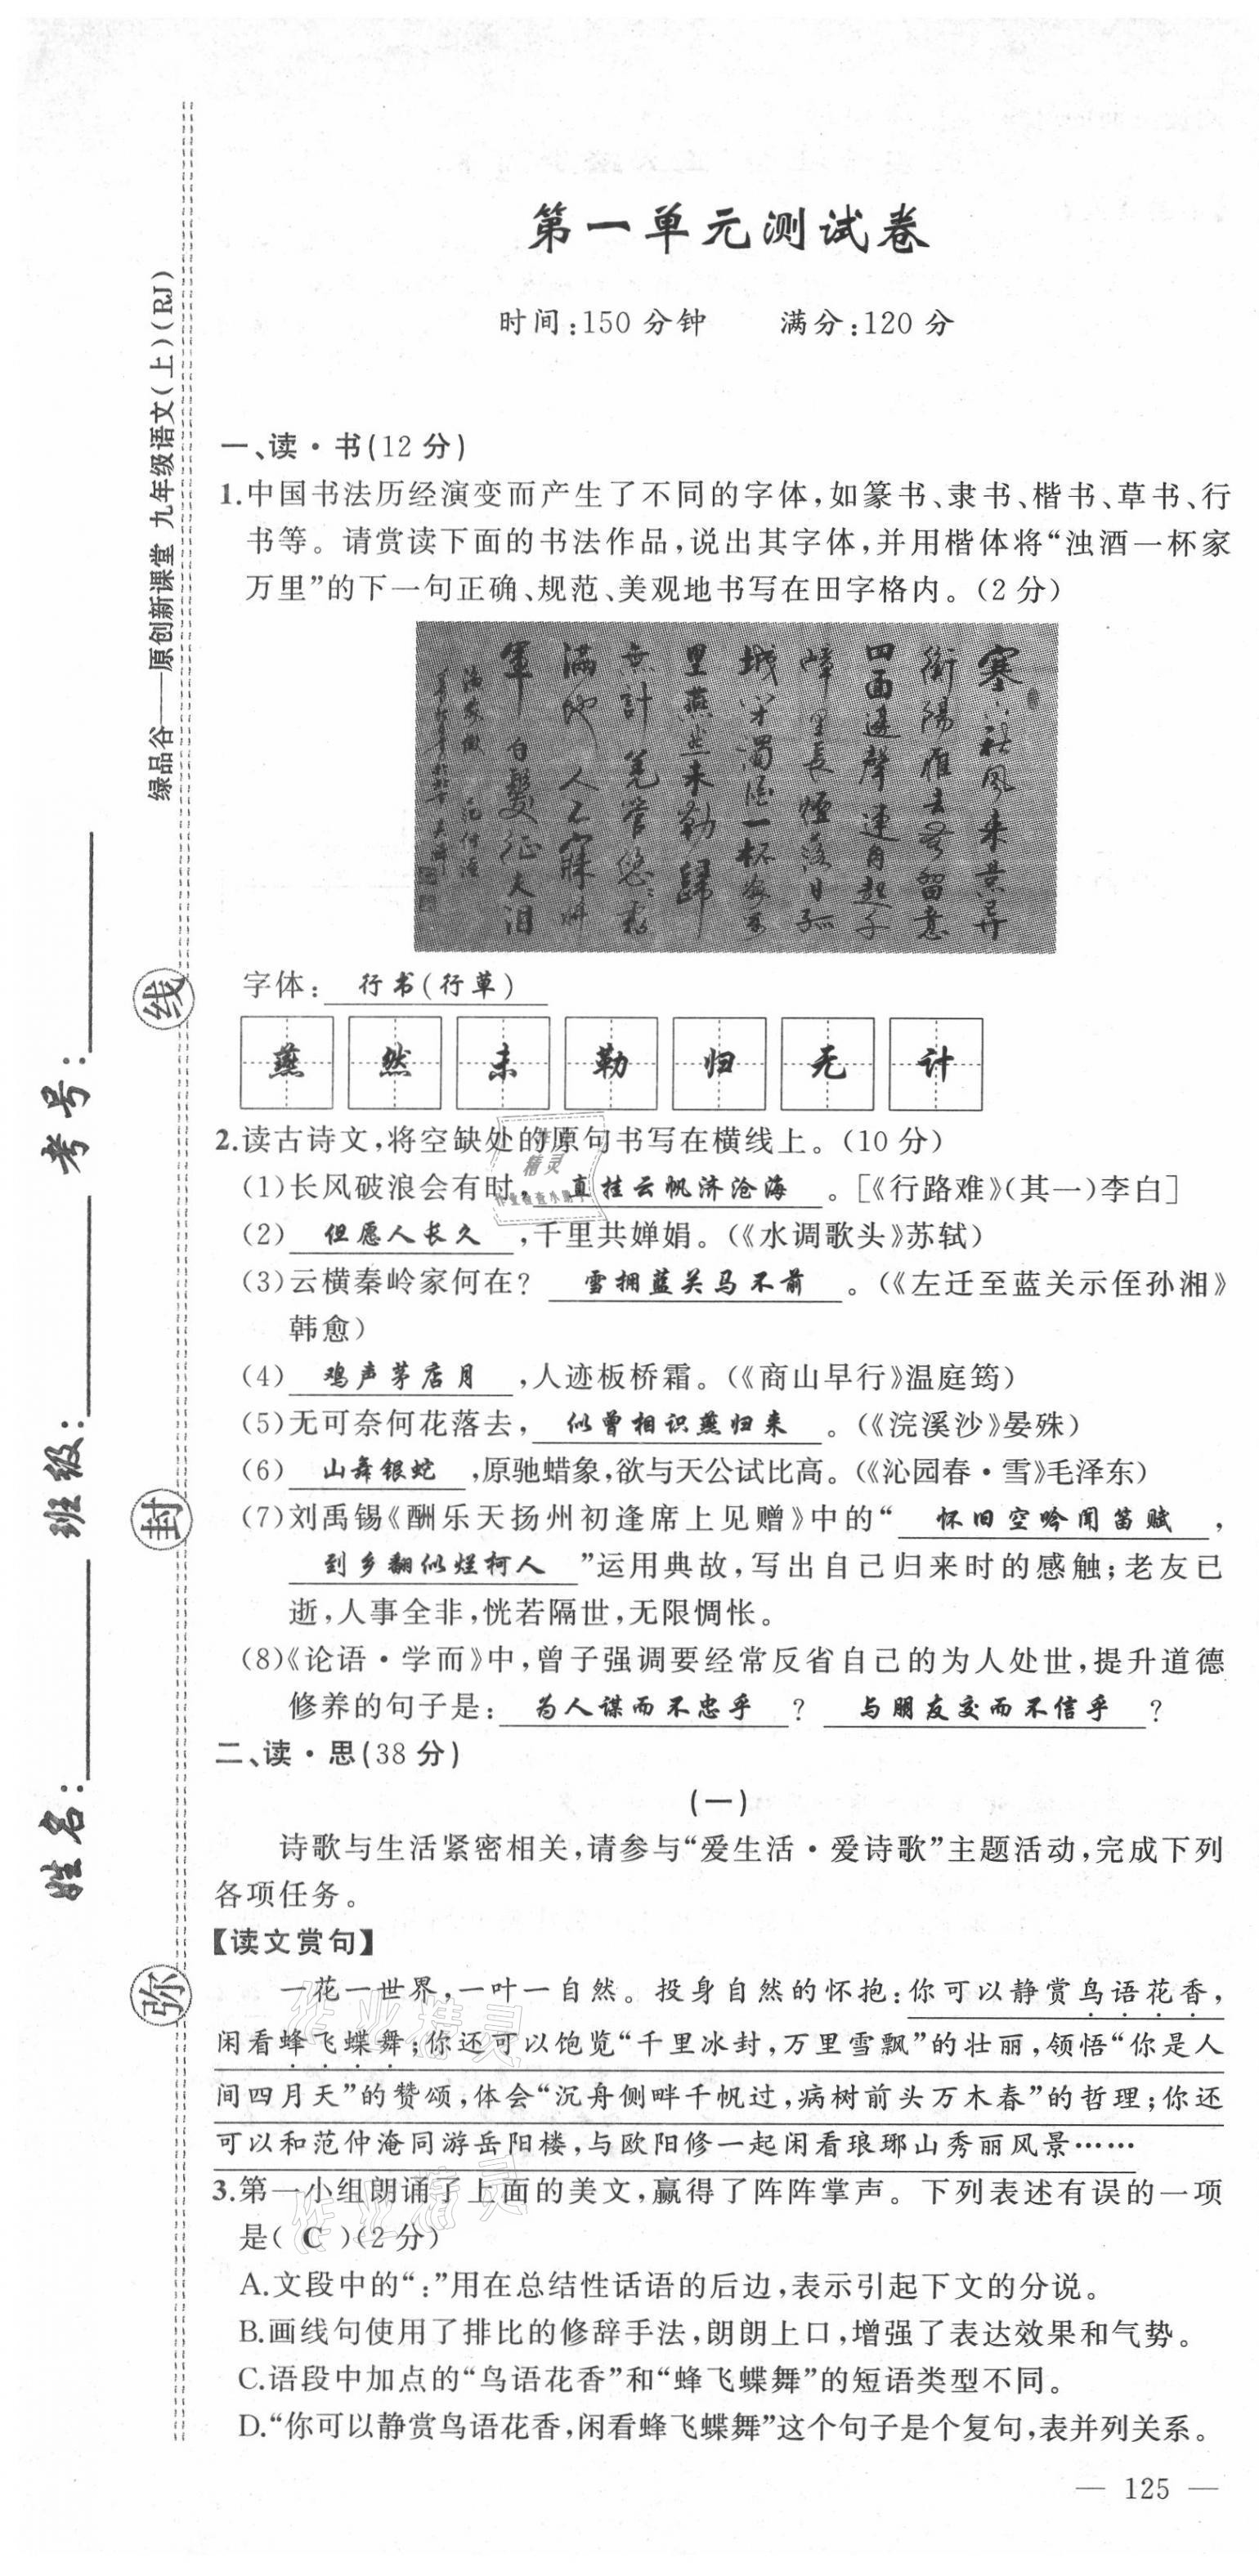 第一单元测试卷
时间:150分钟 满分:120分
一、读·书(12分)
1.中国书法历经演变而产生了不同的字体,如篆书、隶书、楷书、草书、行
书等。请赏读下面的书法作品,说出其字体,并用楷体将“浊酒一杯家
万里”的下一句正确、规范、美观地书写在田字格内。(2分)
塞下秋风来景异
衡阳雁去无留意
四面边声连角起千
嶂里长烟落日孤
城闭浊酒一杯家万
里燕然未勒歸
无计羌管悠悠霜
满地人不寐将
軍白髮征夫泪
渔家傲 范仲淹
字体: 行书(行草)
燕 然 未 勒 归 无 计
2.读古诗文,将空缺处的原句书写在横线上。(10分)
(1)长风破浪会有时, 直挂云帆济沧海 。[《行路难》(其一)李白]
(2) 但愿人长久 ,千里共婵娟。(《水调歌头》苏轼)
(3)云横秦岭家何在? 雪拥蓝关马不前 。(《左迁至蓝关示侄孙湘》
韩愈)
(4) 鸡声茅店月 ,人迹板桥霜。(《商山早行》温庭筠)
(5)无可奈何花落去, 似曾相识燕归来 。(《浣溪沙》晏殊)
(6) 山舞银蛇 ,原驰蜡象,欲与天公试比高。(《沁园春·雪》毛泽东)
(7)刘禹锡《酬乐天扬州初逢席上见赠》中的“ 怀旧空吟闻笛赋 ,
到乡翻似烂柯人 ”运用典故,写出自己归来时的感触;老友已
逝,人事全非,恍若隔世,无限惆怅。
(8)《论语·学而》中,曾子强调要经常反省自己的为人处世,提升道德
修养的句子是: 为人谋而不忠乎 ? 与朋友交而不信乎 ?
二、读·思(38分)
(一)
诗歌与生活紧密相关,请参与“爱生活·爱诗歌”主题活动,完成下列
各项任务。
【读文赏句】
一花一世界,一叶一自然。投身自然的怀抱:你可以静赏鸟语花香,
闲看蜂飞蝶舞;你还可以饱览“千里冰封,万里雪飘”的壮丽,领悟“你是人
间四月天”的赞颂,体会“沉舟侧畔千帆过,病树前头万木春”的哲理;你还
可以和范仲淹同游岳阳楼,与欧阳修一起闲看琅琊山秀丽风景……
3.第一小组朗诵了上面的美文,赢得了阵阵掌声。下列表述有误的一项
是( C )(2分)
A.文段中的“:”用在总结性话语的后边,表示引起下文的分说。
B.画线句使用了排比的修辞手法,朗朗上口,增强了表达效果和气势。
C.语段中加点的“鸟语花香”和“蜂飞蝶舞”的短语类型不同。
D.“你可以静赏鸟语花香,闲看蜂飞蝶舞”这个句子是个复句,表并列关系。
— 125 —
绿品谷——原创新课堂 九年级语文(上)(RJ)
姓名: 班级: 考号:
弥 封 线
精灵
作业检查小助手
作业精灵
作业精灵